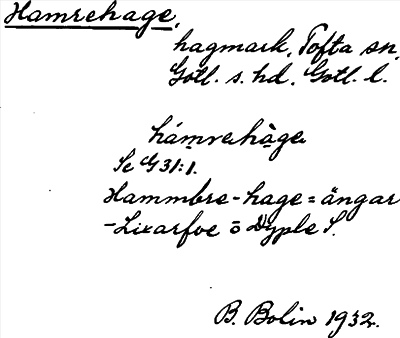 Hamrehage,
hagmark, Tofta sn,
Gotl. s. hd. Gotl. l.
hámrehàge
Se G 31:1.
Hammbre-hage = ängar
-Lixarfve ō Dyple S.
B. Bolin 1932.